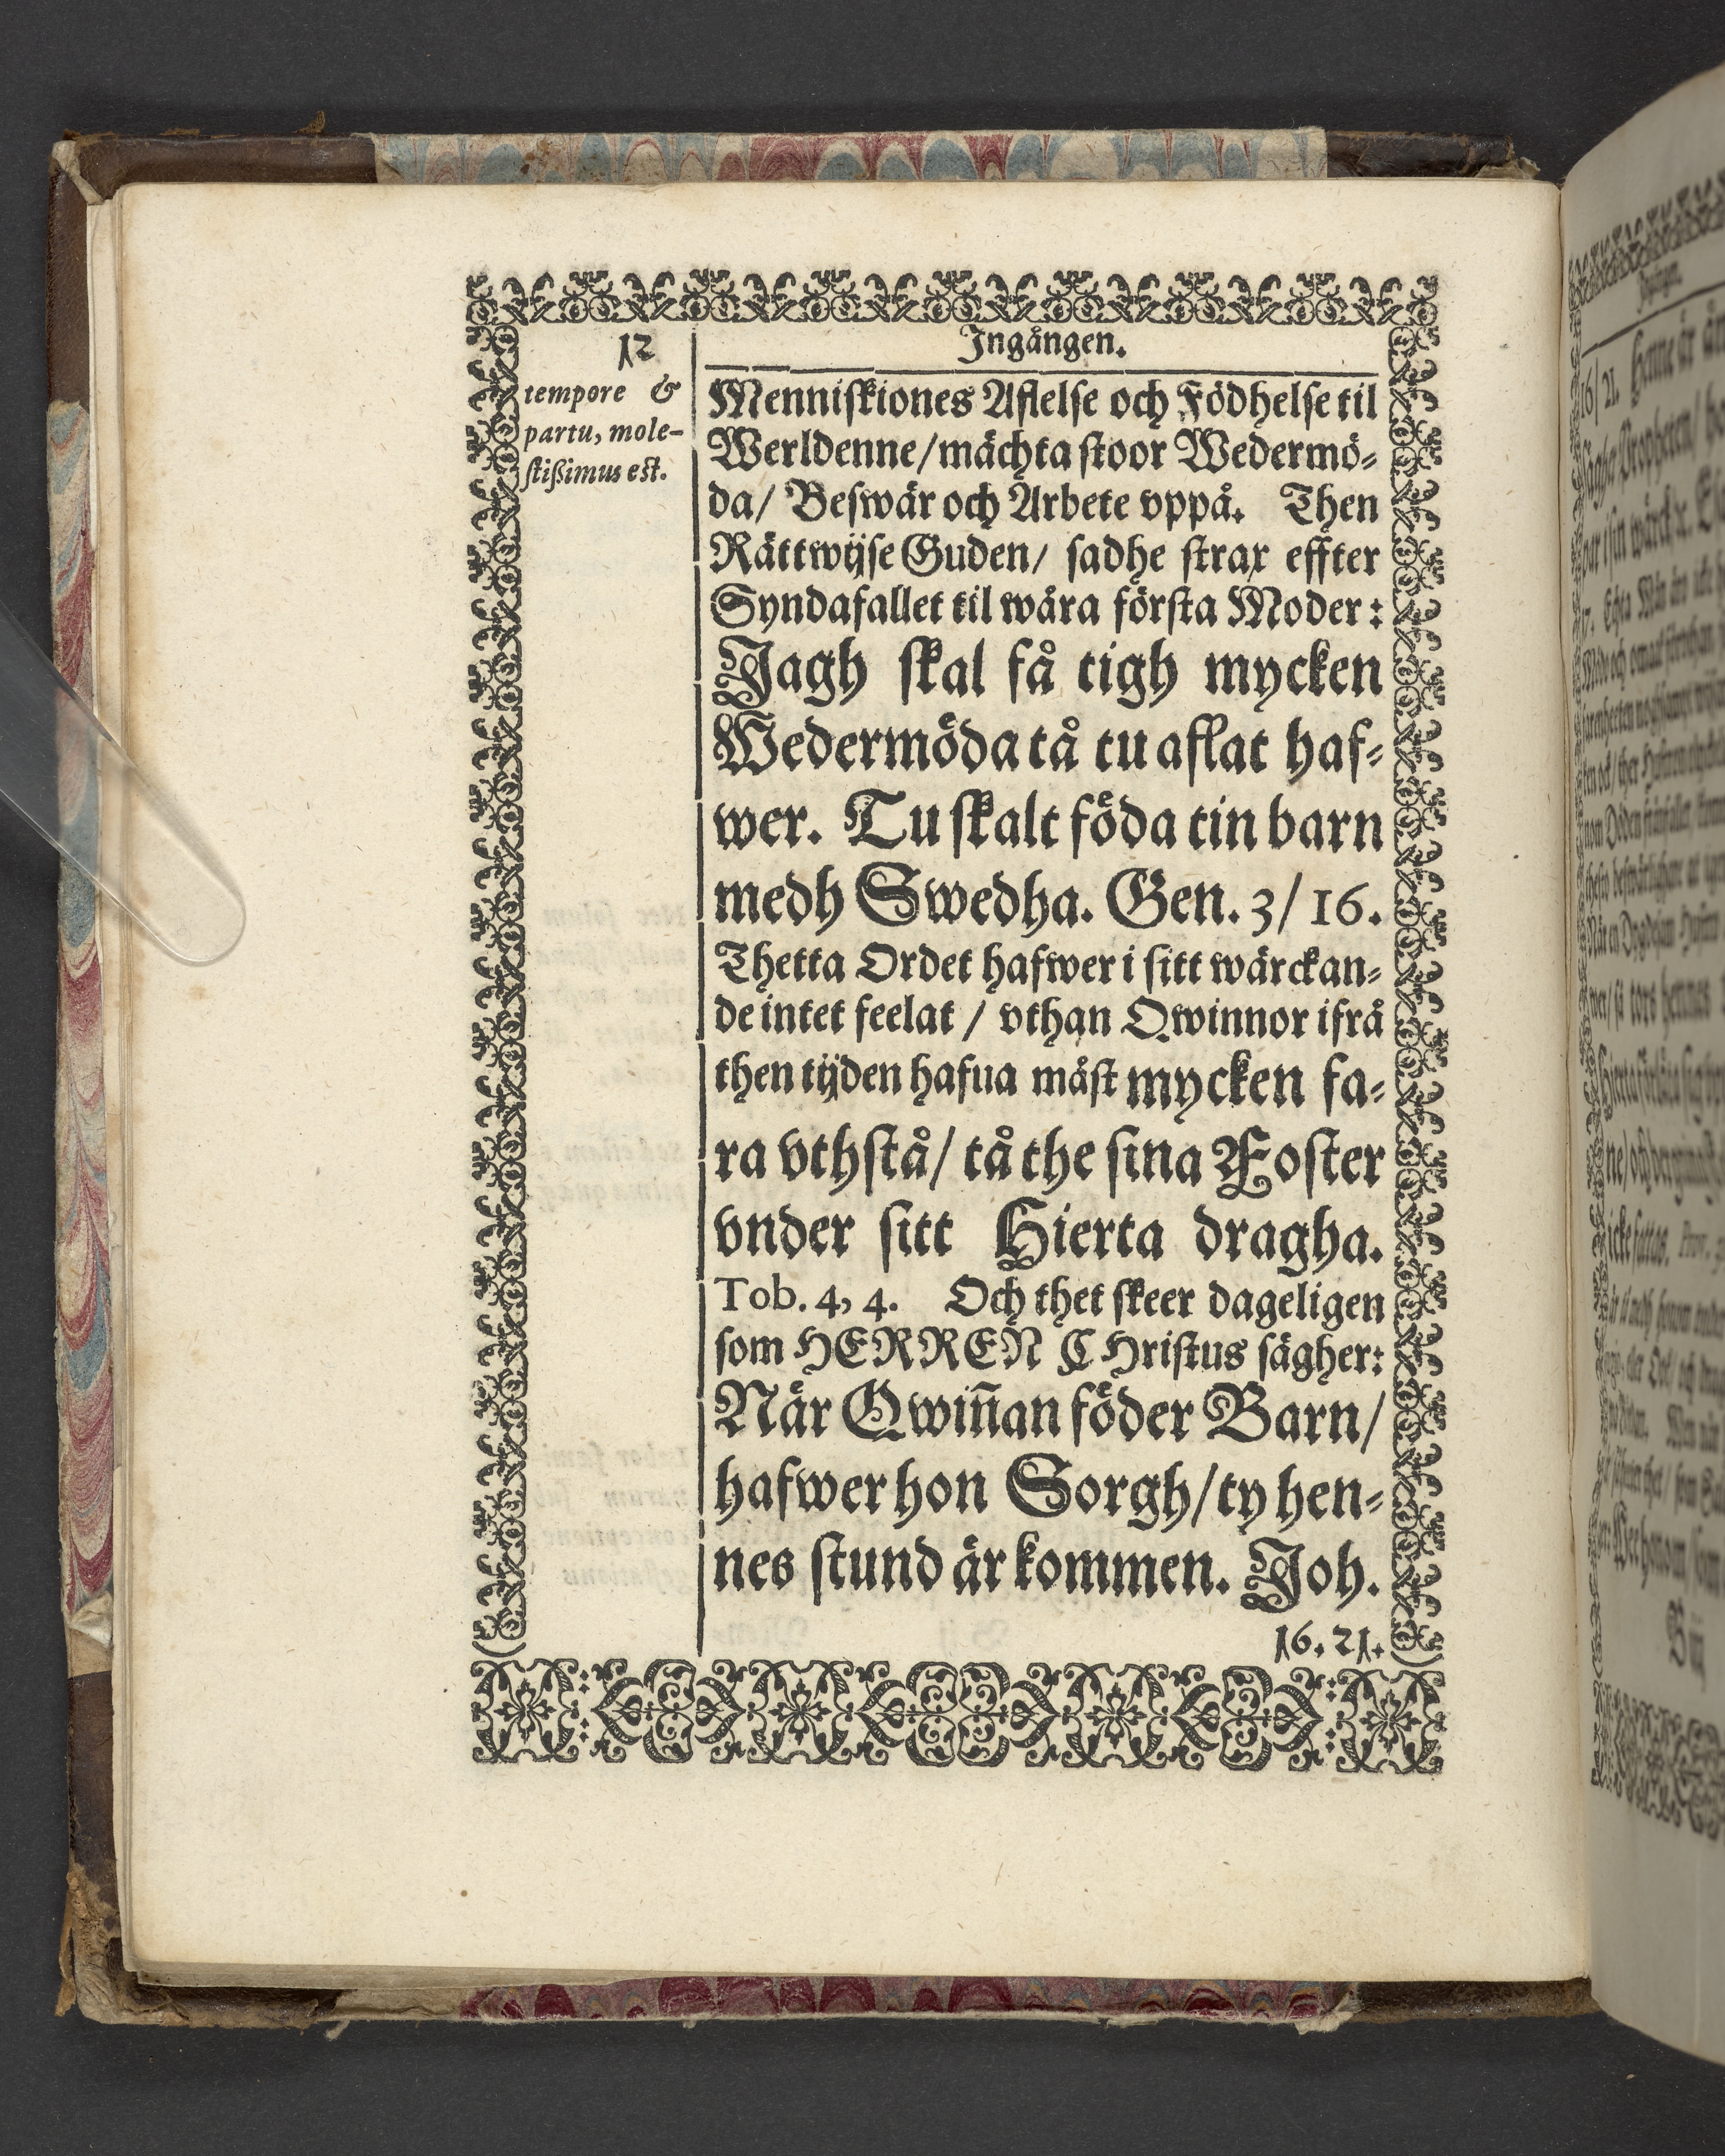 12
Ingången.
tempore &
partu, mole-
stißimus est.
Menniskiones Aflelse och Födhelse til
Werldenne/mächta stoor Wedermö-
da/ Beswär och Arbete vppå. Then
Rättwijse Guden/ sadhe strax effter
Syndafallet til wåra första Moder:
Jagh skal få tigh mycken
Wedermöda tå tu aflat haf-
wer. Tu skalt föda tin barn
medh Swedha. Gen. 3/ 16.
Thetta Ordet hafwer i sitt wärckan-
de intet feelat / vthan Qwinnor ifrå
then tijden hafua måst mycken fa-
ra vthstå/ tå the sina Foster
vnder sitt Hierta dragha.
Tob. 4, 4. Och thet skeer dageligen
som HERREN CHristus sägher:
När Qwiñan föder Barn/
hafwer hon Sorgh/ty hen-
nes stund är kommen. Joh.
16. 21.